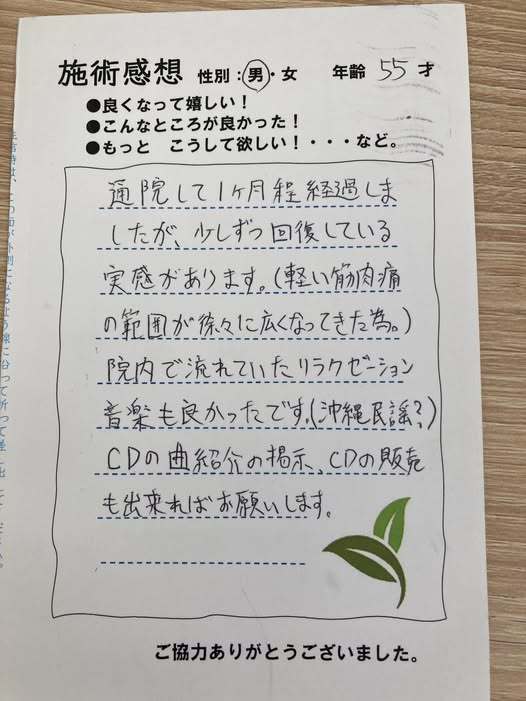 施術感想 性別：男・女 年齢 55 才
●良くなって嬉しい！
●こんなところが良かった！
●もっと こうして欲しい！・・・など。
通院して1ヶ月程経過しま
したが、少しずつ回復している
実感があります。(軽い筋肉痛
の範囲が徐々に広くなってきた為。)
院内で流れていたリラクゼーション
音楽も良かったです。(沖縄民謡?)
CDの曲紹介の掲示、CDの販売
も出来ればお願いします。
ご協力ありがとうございました。